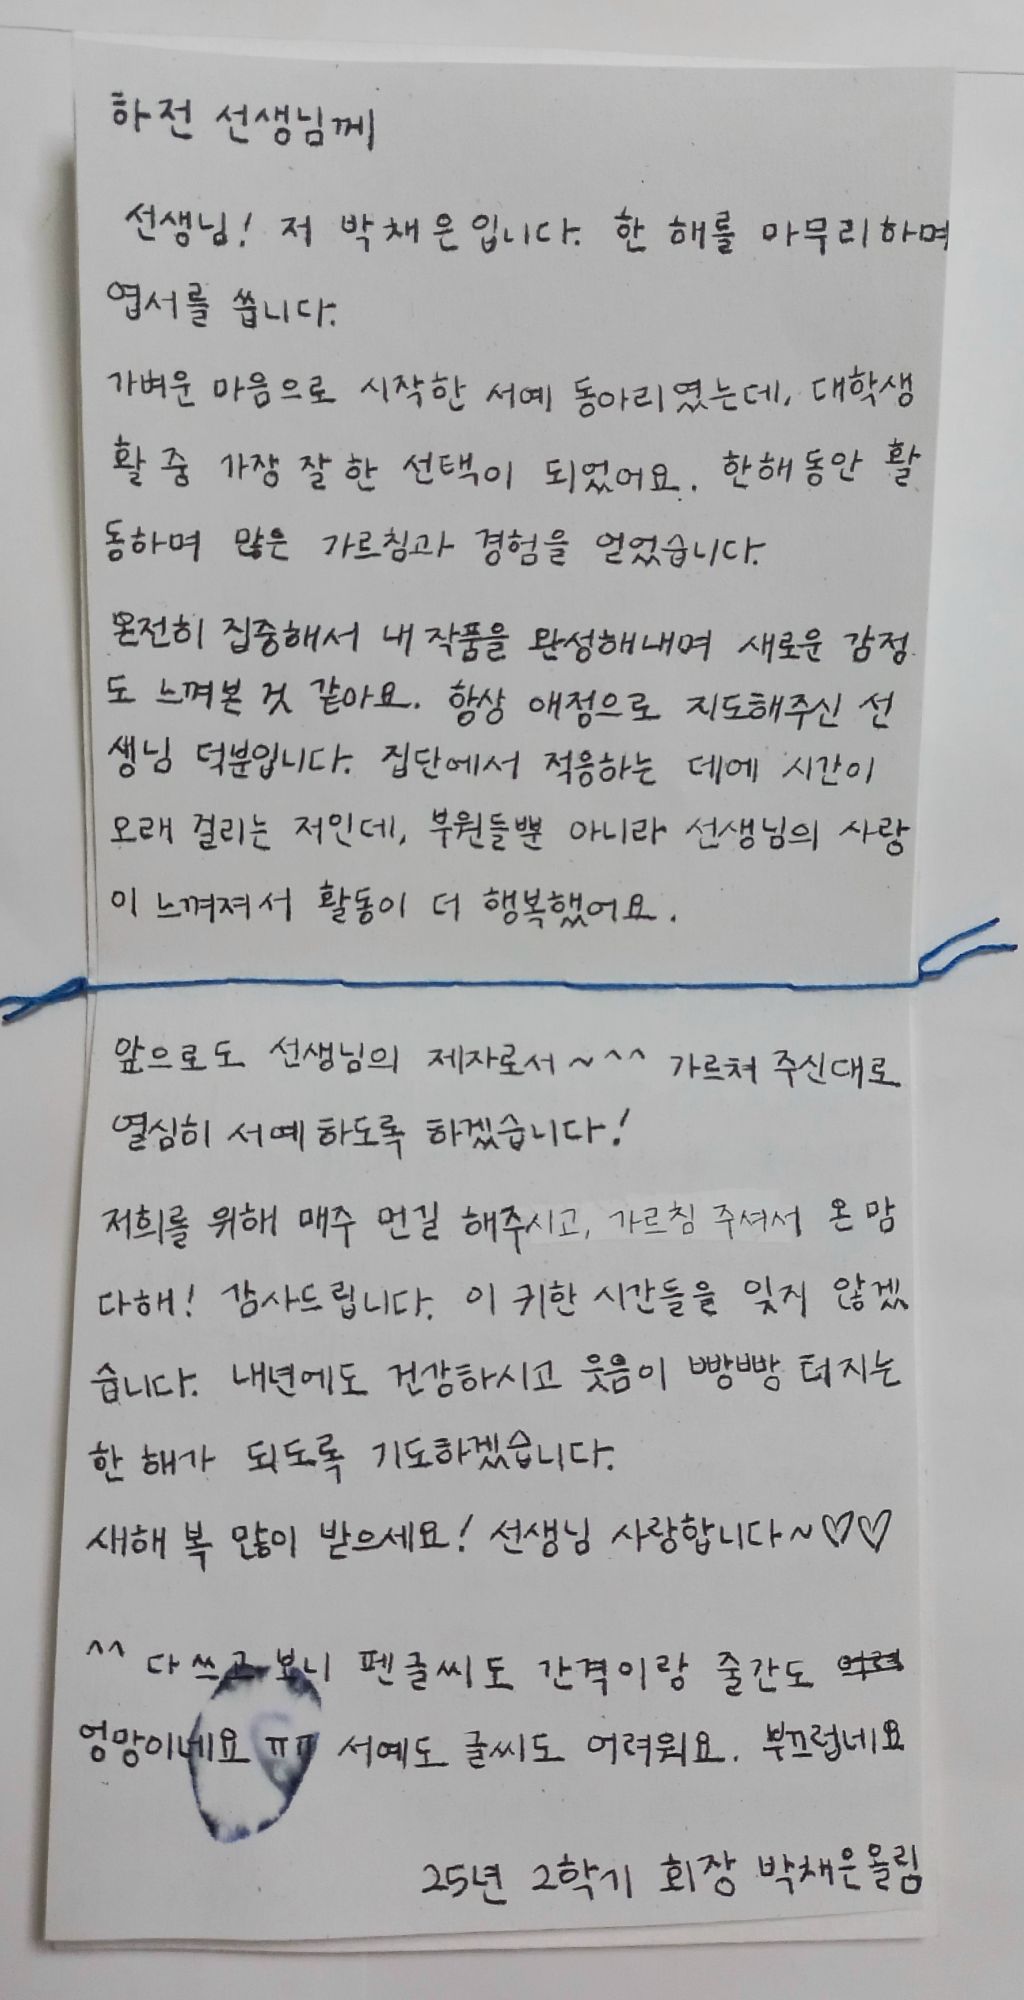 하전 선생님께
선생님! 저 박채은입니다. 한 해를 마무리하며
엽서를 씁니다.
가벼운 마음으로 시작한 서예 동아리였는데, 대학생
활 중 가장 잘 한 선택이 되었어요. 한해동안 활
동하며 많은 가르침과 경험을 얻었습니다.
온전히 집중해서 내 작품을 완성해내며 새로운 감정
도 느껴본 것 같아요. 항상 애정으로 지도해주신 선
생님 덕분입니다. 집단에서 적응하는 데에 시간이
오래 걸리는 저인데, 부원들뿐 아니라 선생님의 사랑
이 느껴져서 활동이 더 행복했어요.
앞으로도 선생님의 제자로서~^^ 가르쳐 주신대로
열심히 서예하도록 하겠습니다!
저희를 위해 매주 먼길 해주시고, 가르침 주셔서 온 맘
다해! 감사드립니다. 이 귀한 시간들을 잊지 않겠
습니다. 내년에도 건강하시고 웃음이 빵빵 터지는
한 해가 되도록 기도하겠습니다.
새해 복 많이 받으세요! 선생님 사랑합니다~♡♡
^^ 다 쓰고 보니 펜글씨도 간격이랑 줄간도
엉망이네요 ㅠㅠ 서예도 글씨도 어려워요. 부끄럽네요
25년 2학기 회장 박채은올림